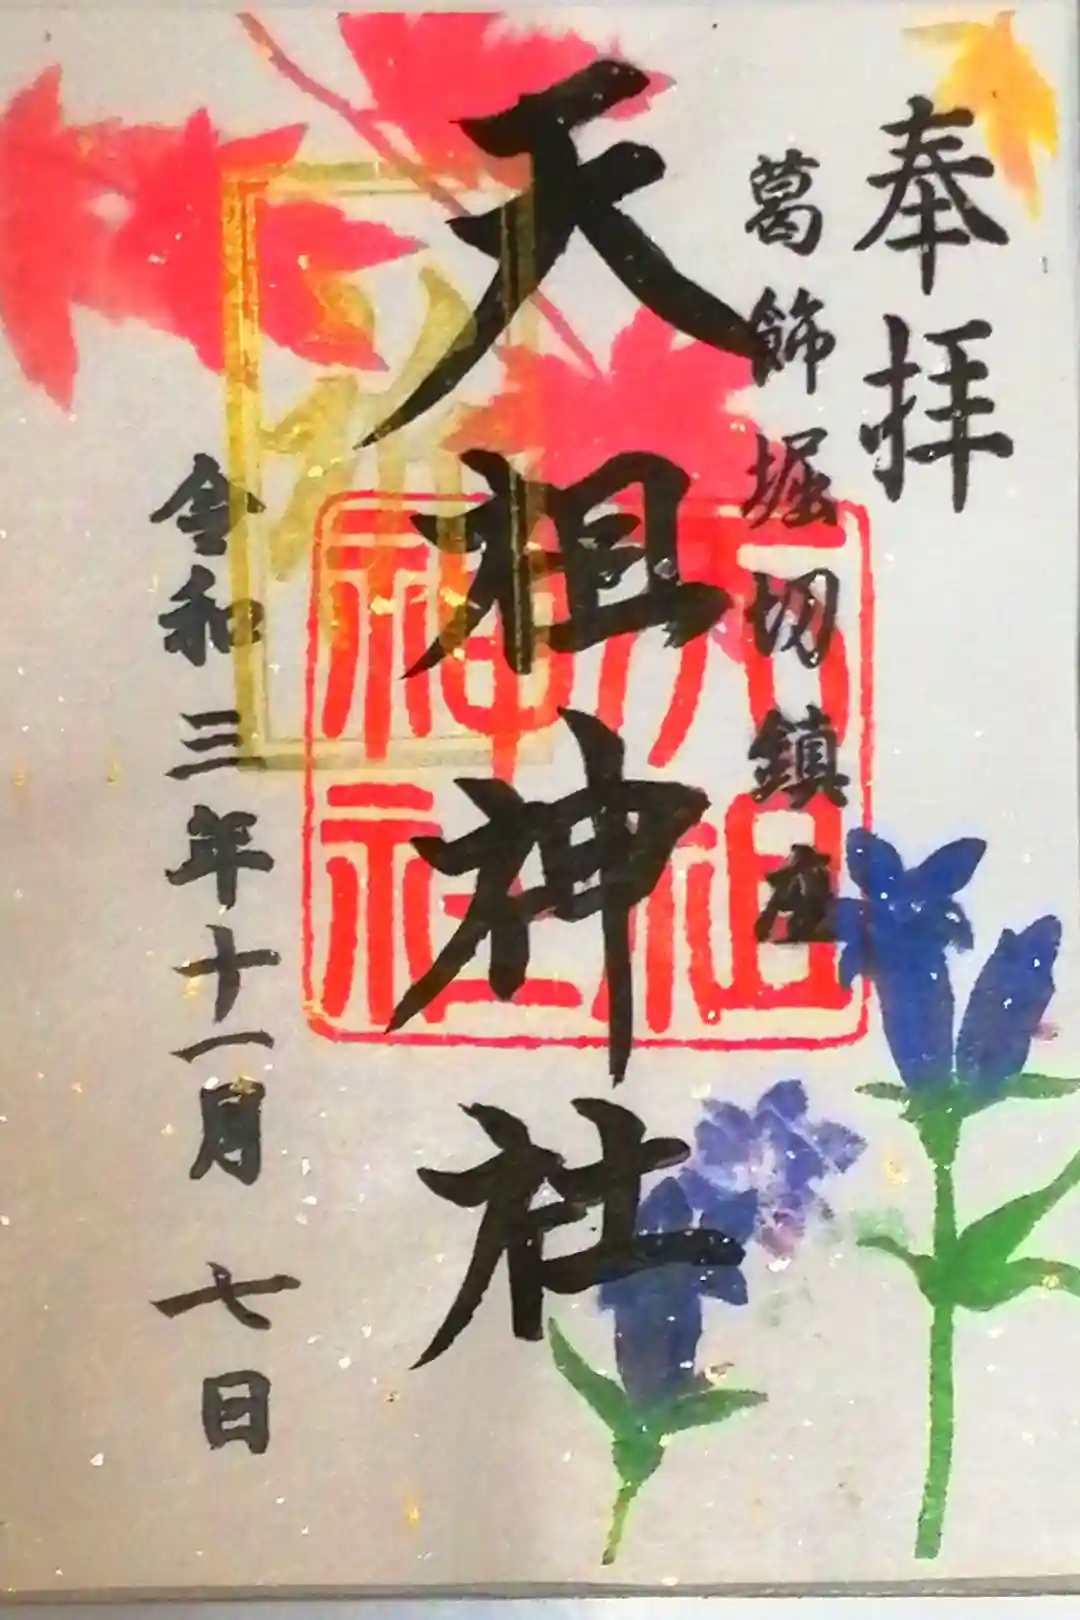 奉拝
葛飾堀切鎮座
天祖神社
天祖
神社
令和三年十一月七日